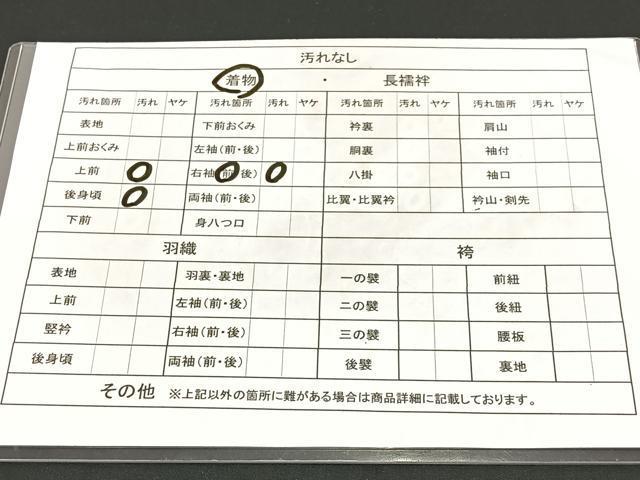 汚れなし
着物 ・ 長襦袢
汚れ箇所 汚れ ヤケ 汚れ箇所 汚れ ヤケ 汚れ箇所 汚れ ヤケ 汚れ箇所 汚れ ヤケ
表地 下前おくみ 衿裏 肩山
上前おくみ 左袖(前・後) 胴裏 袖付
上前 右袖(前・後) 八掛 袖口
後身頃 両袖(前・後) 比翼・比翼衿 衿山・剣先
下前 身八つ口
羽織 袴
表地 羽裏・裏地 一の襞 前紐
上前 左袖(前・後) 二の襞 後紐
竪衿 右袖(前・後) 三の襞 腰板
後身頃 両袖(前・後) 後襞 裏地
その他 ※上記以外の箇所に難がある場合は商品詳細に記載しております。